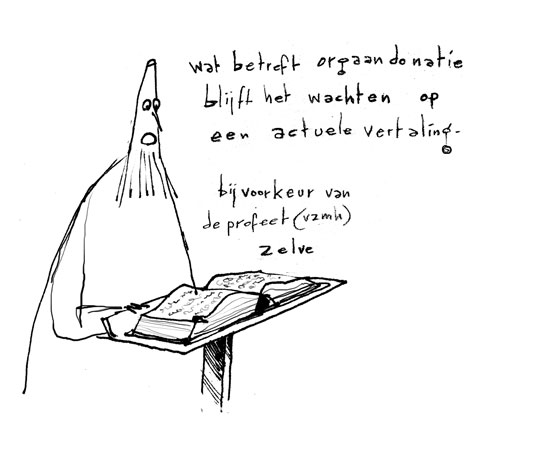 wat betreft orgaandonatie
blijft het wachten op
een actuele vertaling.
bij voorkeur van
de profeet (vzmh)
zelve